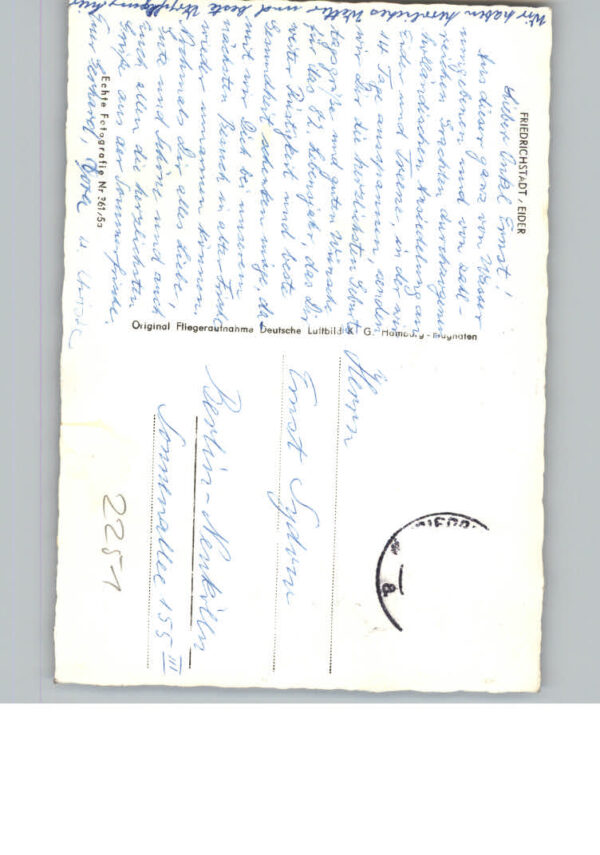 FRIEDRICHSTADT / EIDER
Lieber Onkel Ernst!
Aus dieser ganz von Wasser
umgebenen und von zahl-
reichen Grachten durchzogenen
holländischen Ansiedlung an
Eider und Treene, in der wir
14 Tage ausspannen, senden
wir Dir die herzlichsten Geburts-
tagsgrüße und guten Wünsche
für das 82. Lebensjahr, das Dir
weiter Rüstigkeit und beste
Gesundheit schenken möge, da-
mit wir Dich bei unserem
nächsten Besuch in alter Frische
wieder umarmen können.
Nochmals Dir alles Liebe,
Gute und Schöne und auch
Euch allen die herzlichsten
Grüße aus der Sommerfrische.
Eure Gerhard, Dora u.
Wir haben herrliches Wetter und beste Verpflegung hier
Echte Fotografie Nr 361/53
Original Fliegeraufnahme Deutsche Luftbild K. G. Hamburg-Flughafen
Herrn
Ernst Sydow
Berlin-Neukölln
Sonnenallee 155 III
2251
a